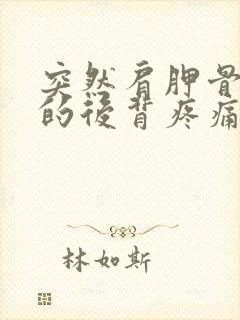 突然肩胛骨
的后背疼痛
林如斯